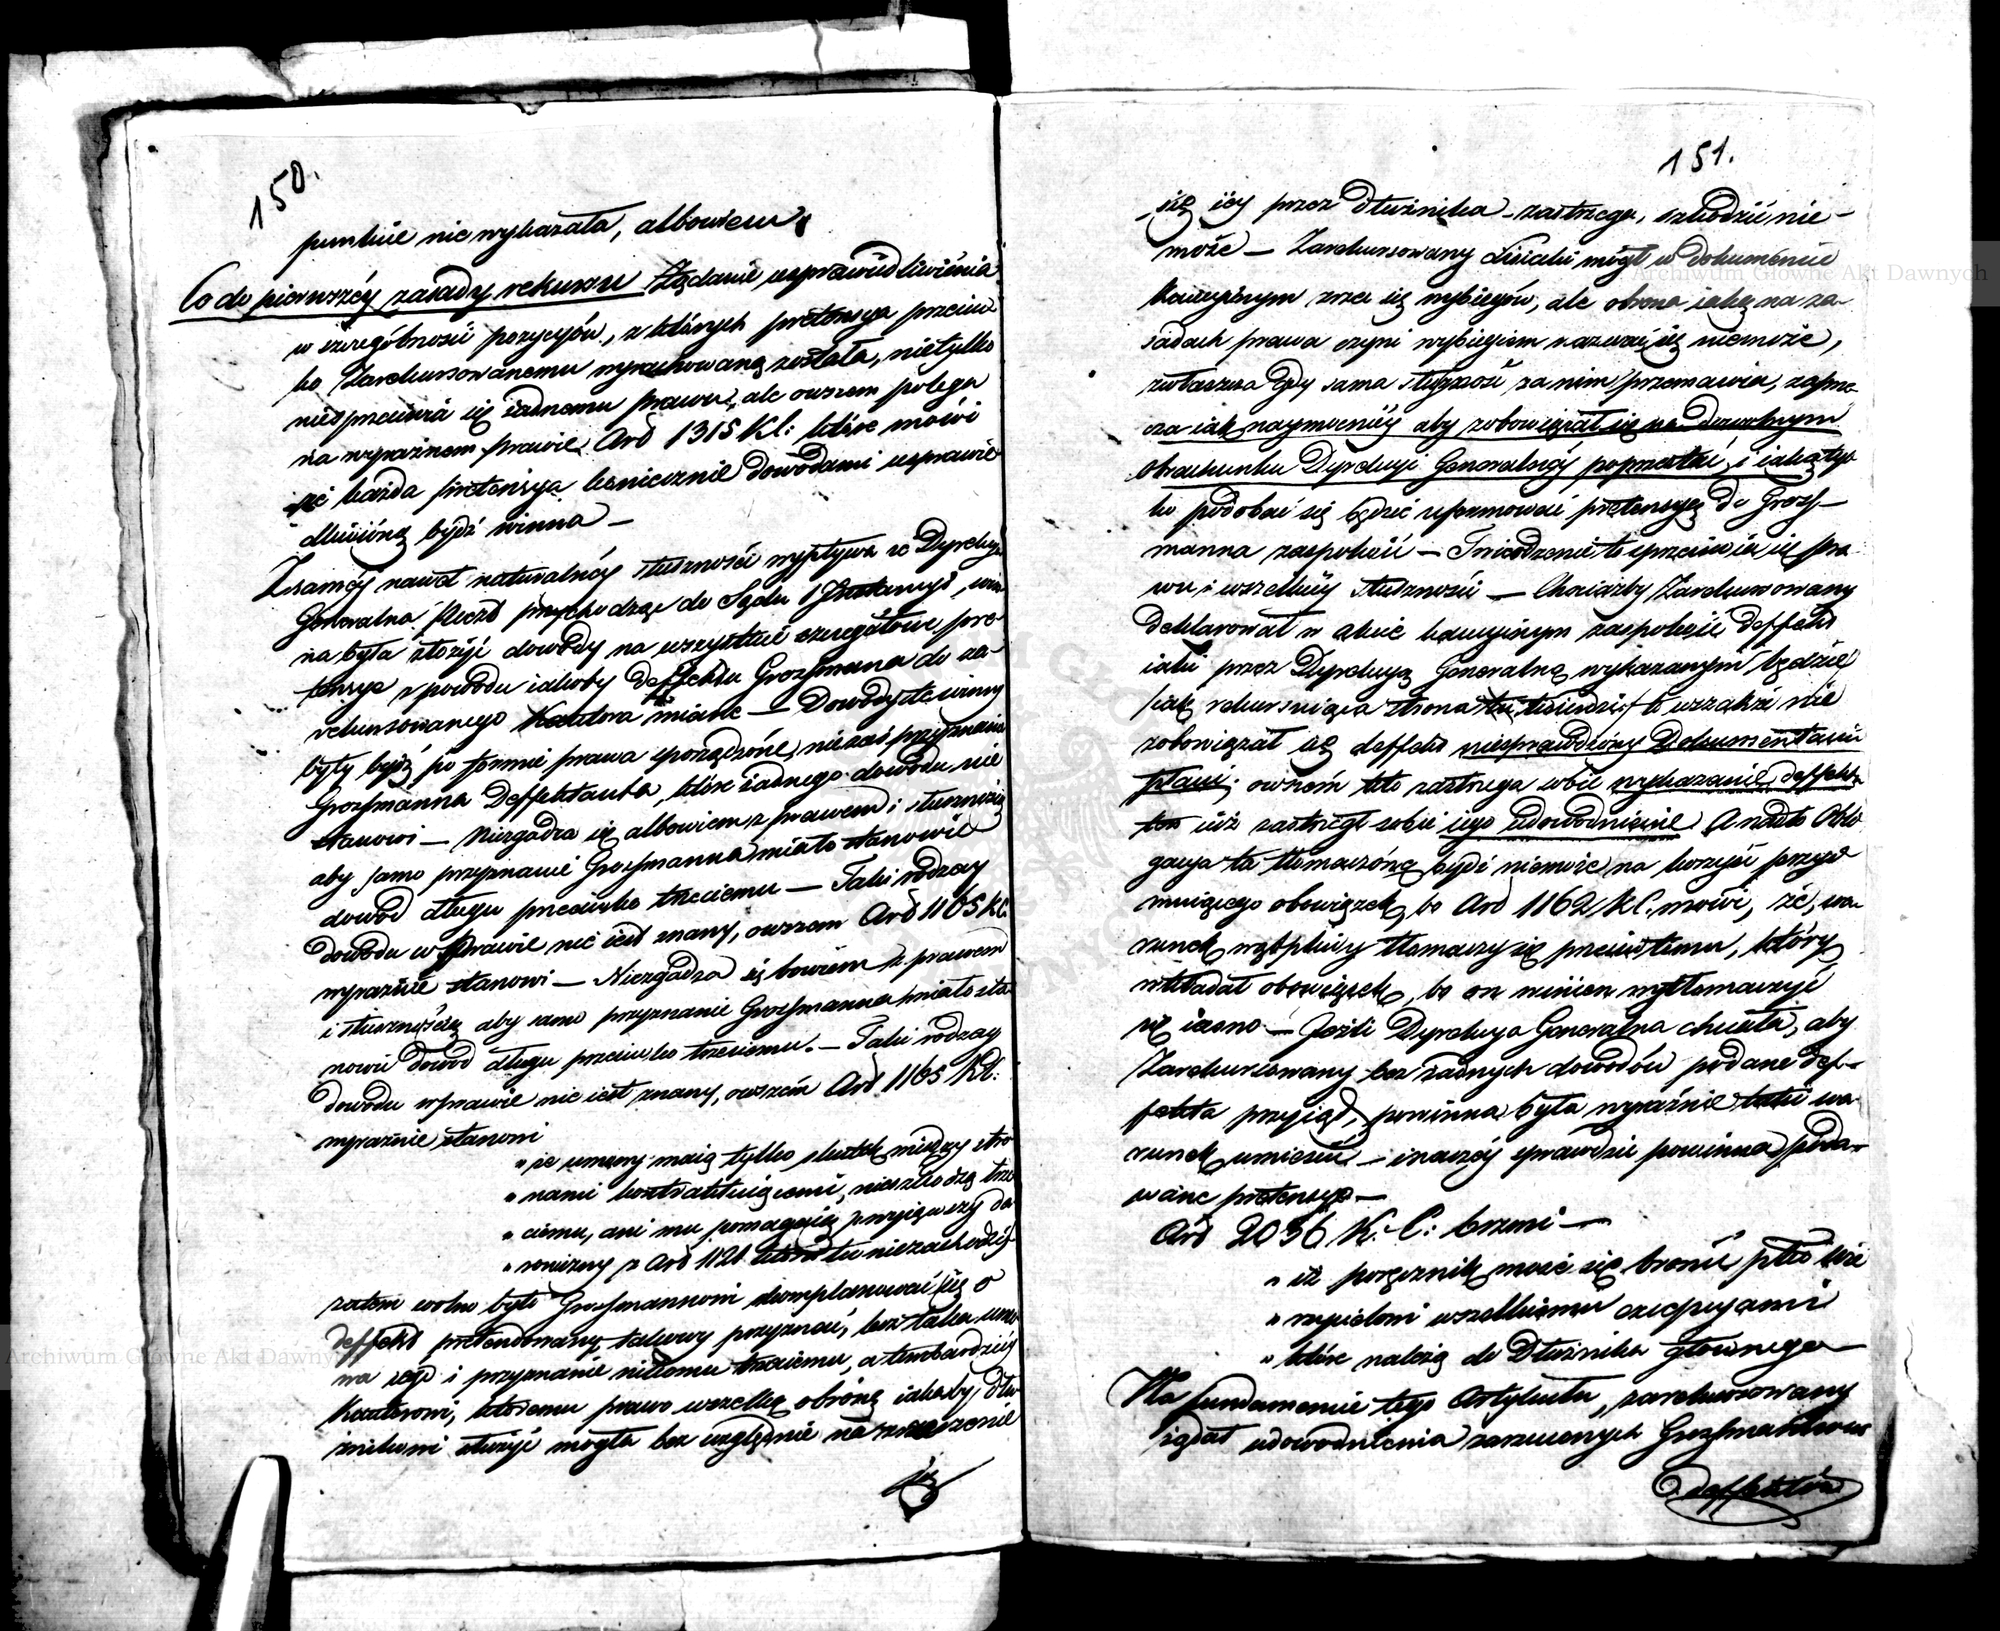 150.
punkcie nie wykazała, albowiem
Co do pierwszéy zasady rekursu Żądanie usprawiedliwienia
w szczególności pozycyów, z których pretensya przeciw
ko Zarekursowanemu wyrachowaną została, nietylko
niesprzeciwia się żadnemu prawu, ale owszem polega
na wyraźnem prawie Art 1315 K.C: które mówi
że każda pretensya koniecznie dowodami usprawie
dliwioną bydź winna —
Z saméy nawet naturalnéy słuszności wypływa że Dyrekcya
Generalna Poczt przychodząc do Sądu, win
na była złożyć dowody na wszystkie szczegółowe pre
tensye z powodu jakoby deffektu Grossmanna do za-
rekursowanego Kautora miane — Dowody te winny
były bydź po formie prawa sporządzone, nie zaś przyznania
Grossmanna Deffektanta, które żadnego dowodu nie
stanowi — Niezgadza się albowiem z prawem i słusznością
aby samo przyznanie Grossmanna miało stanowić
dowód długu przeciwko trzeciemu — Taki rodzay
dowodu w Prawie nie iest znany, owszem Art 1165 K.C.
wyraźnie stanowi — Niezgadza się bowiem z prawem
i słusznością aby samo przyznanie Grossmanna miało sta
nowić dowód długu przeciwko trzeciemu. — Taki rodzay
dowodu w prawie nie iest znany, owszem Art 1165 K.C:
wyraźnie stanowi
„ że umowy maią tylko skutek między stro
„ nami kontraktuiącemi, nieszkodzą trze
„ ciemu, ani mu pomagaią przyiąwszy do
„ rozumiany z Art 1121 który tu niezachodzi
zatem wolno było Grossmannowi skomplanować się o
deffekt pretendowany, takowy przyznać, lecz taka umo
wa iego i przyznanie nikomu trzeciemu, a tembardziéy
Kautorowi, któremu prawo wszelką obronę iakaby dłu
żnikowi służyć mogła bez względu na zrzeczenie
się
151.
się iéy przez dłużnika zastrzega, szkodzić nie
może — Zarekursowany Lisiecki mógł w dokumencie
kaucyinym zrzec się wybiegów, ale obrona iaką na za
sadach prawa czyni wybiegiem nazwać się niemoże,
zwłaszcza gdy sama słuszność za nim przemawia, zaprze
cza iak naymocniéy aby zobowiązał się na dowolnym
obrachunku Dyrekcyi Generalnéy poprzestać i iaką tyl
ko podobać się będzie uformować pretensyą do Gross
manna zaspokoić — Twierdzenie to sprzeciwia się pra
wu i wszelkiéy słuszności — Chociażby Zarekursowany
deklarował w akcie kaucyinym zaspokoić deffekt
iaki przez Dyrekcyą Generalną wykazanym będzie
/iak rekursuiąca strona tu twierdzi/ to wszakże nie
zobowiązał się deffekt niesprawdzony Dokumentami
płacić, owszem kto zastrzega sobie wykazanie deffektu
ten iuż zastrzegł sobie iego udowodnienie. A nadto Obli
gacya ta tłomaczoną bydź niemoże na korzyść przyy
muiącego obowiązek, bo Art 1162 K.C. mówi, że, wa
runek wątpliwy tłomaczy się przeciw temu, który
wkładał obowiązek, bo on winien wytłomaczyć
się iasno — Jeżeli Dyrekcya Generalna chciała, aby
Zarekursowany bez żadnych dowodów podane def-
fekta przyiął, powinna była wyraźnie taki wa
runek umieścić — inaczéy sprawdzić powinna poda-
wane pretensye —
Art 2036 K. C: brzmi —
„ iż poręcznik może się bronić przeciwko wie
„ rzycielowi wszelkiemi excepcyami
„ które należą do Dłużnika głównego —
Na fundamencie tego Artykułu, zarekursowany
żądał udowodnienia zarzuconych Grossmannowi
deffektów
Archiwum Główne Akt Dawnych
Archiwum Główne Akt Dawnych